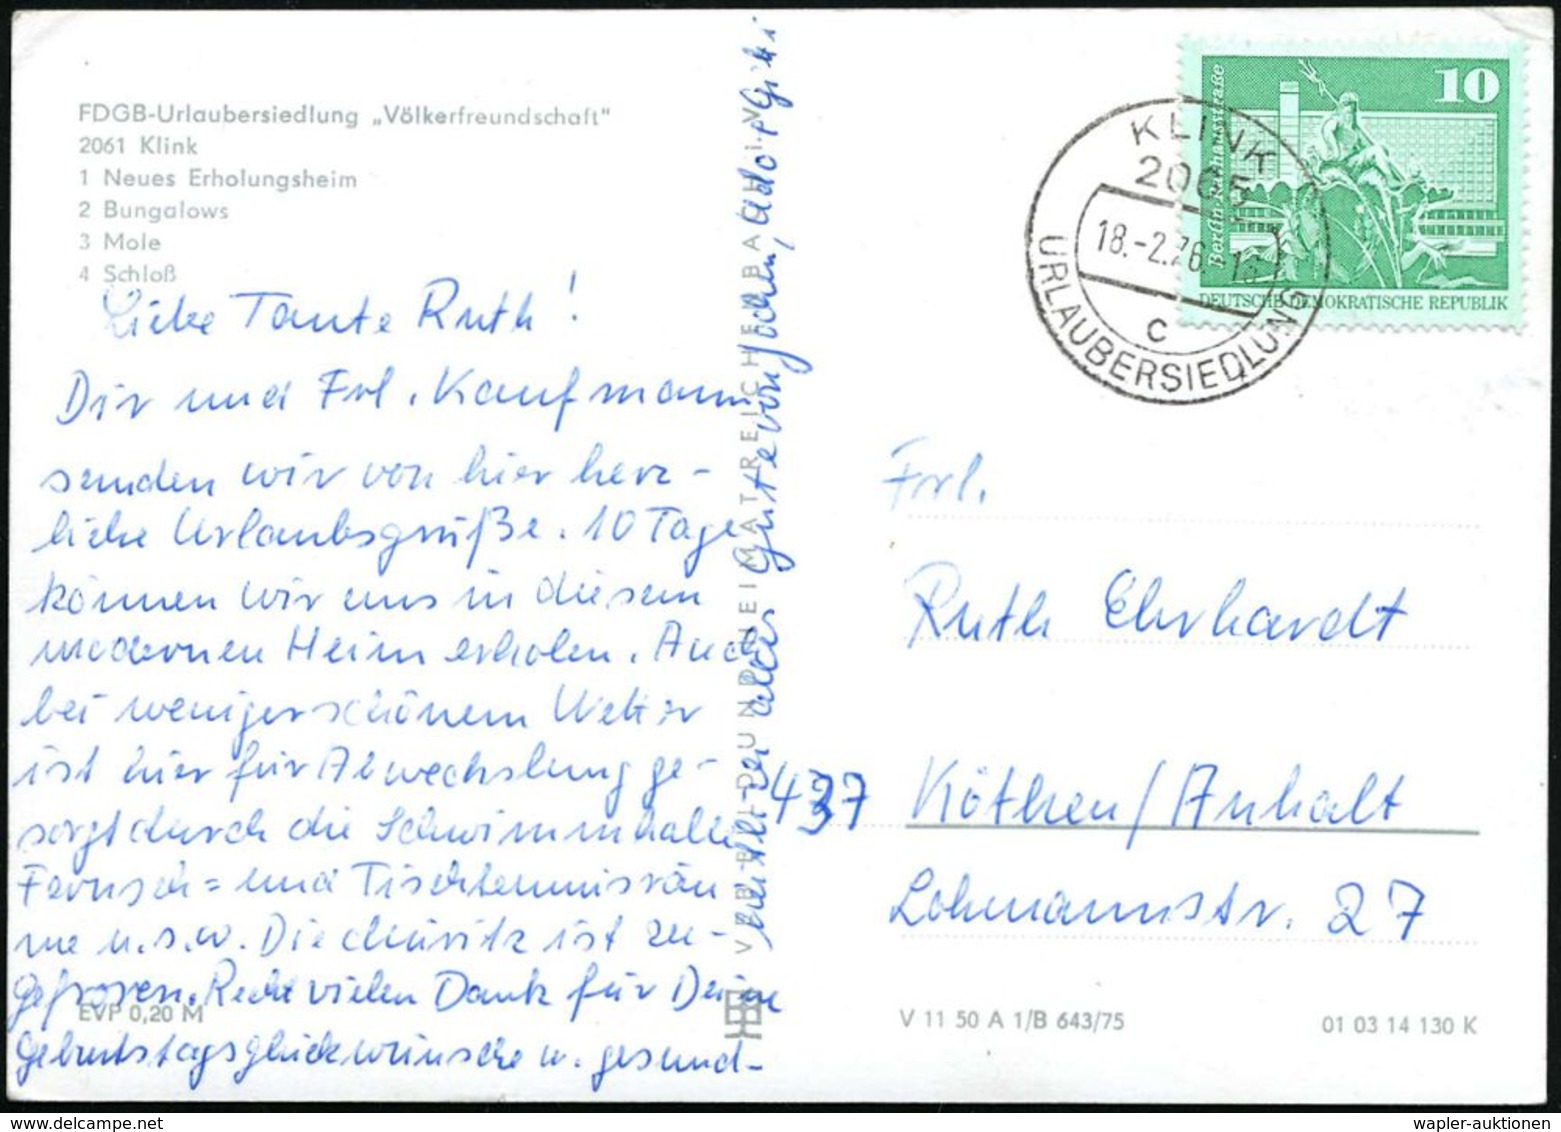 FDGB-Urlaubersiedlung „Völkerfreundschaft"
2061 Klink
1 Neues Erholungsheim
2 Bungalows
3 Mole
4 Schloß
Liebe Tante Ruth!
Dir und Frl. Kaufmann
senden wir von hier herz-
liche Urlaubsgrüße. 10 Tage
können wir uns in diesem
modernen Heim erholen. Auch
bei weniger schönem Wetter
ist hier für Abwechslung ge-
sorgt durch die Schwimmhalle
Fernseh= und Tischtennisräu
me u.s.w. Die Müritz ist zu-
gefroren. Recht vielen Dank für Deine
Geburtstagsglückwünsche u. gesund-
heitlich alles Gute von Jochen,
EVP 0,20 M
VEB BILD UND HEIMAT REICHENBACH I. V.
10
Berlin Rathausstraße
DEUTSCHE DEMOKRATISCHE REPUBLIK
KLINK
2065
18.-2.76.
c
URLAUBERSIEDLUNG
Frl.
Ruth Ehrhardt
437 Köthen/Anhalt
Lohmannstr. 27
V 11 50 A 1/B 643/75
01 03 14 130 K
wapler-auktionen